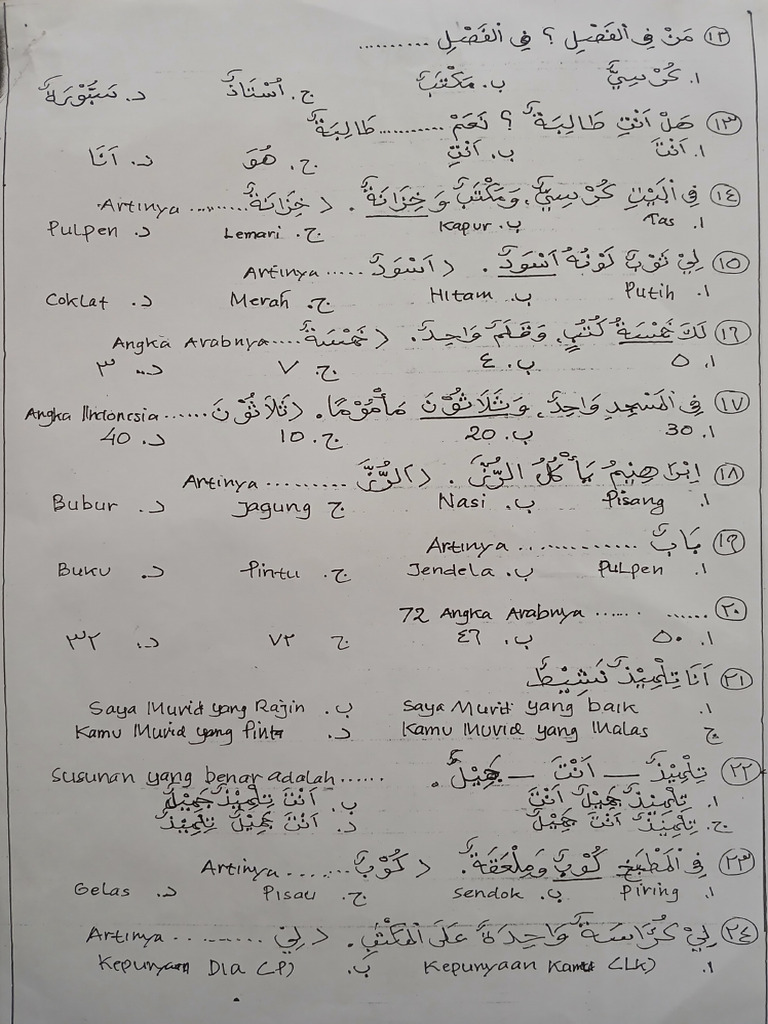 ١٢ مَنْ فِى الْفَصْلِ ؟ فِى الْفَصْلِ ..........
١. كُرْسِيٌّ ب. مَكْتَبٌ ج. اُسْتَاذٌ د. سَبُّوْرَةٌ
١٣ هَلْ اَنْتِ طَالِبَةٌ ؟ نَعَمْ .......... طَالِبَةٌ
١. اَنْتَ ب. اَنْتِ ج. هُوَ د. اَنَا
١٤ فِى الْبَيْتِ كُرْسِيٌّ، وَمَكْتَبٌ وَخِزَانَةٌ. (خِزَانَةٌ......... Artinya
١. Tas ب. Kapur ج. Lemari د. Pulpen
١٥ لِيْ ثَوْبٌ لَوْنُهُ اَسْوَدٌ. (اَسْوَدٌ ..... Artinya
١. Putih ب. Hitam ج. Merah د. Coklat
١٦ لَكَ خَمْسَةُ كُتُبٍ، وَقَلَمٌ وَاحِدٌ. (خَمْسَةٌ.... Angka Arabnya
١. ٥ ب. ٤ ج. ٧ د. ٣
١٧ فِى الْمَسْجِدِ وَاحِدٌ، وَثَلَاثُوْنَ مَأْمُوْمًا. (ثَلَاثُوْنَ...... Angka Indonesia
١. 30 ب. 20 ج. 10 د. 40
١٨ اِبْرَاهِيْمُ يَأْكُلُ الرُّزَّ. (الرُّزَّ ......... Artinya
١. Pisang ب. Nasi ج Jagung د. Bubur
١٩ بَابٌ ............. Artinya
١. Pulpen ب. Jendela ج. Pintu د. Buku
٢٠. ...... ...... 72 Angka Arabnya
١. ٥٠ ب. ٤٦ ج ٧٢ د. ٣٢
٢١ اَنَا تِلْمِيْذٌ نَشِيْطٌ
١. Saya Murid yang baik ب. Saya Murid yang Rajin
ج Kamu Murid yang Malas د. Kamu Murid yang Pintar
٢٢ تِلْمِيْذٌ – اَنْتَ – جَمِيْلٌ. Susunan yang benar adalah ......
١. تِلْمِيْذٌ جَمِيْلٌ اَنْتَ ب. اَنْتَ تِلْمِيْذٌ جَمِيْلٌ
ج. تِلْمِيْذٌ اَنْتَ جَمِيْلٌ د. اَنْتَ جَمِيْلٌ تِلْمِيْذٌ
٢٣ فِى الْمَطْبَخِ كُوْبٌ وَمِلْعَقَةٌ. (كُوْبٌ....... Artinya
١. Piring ب. Sendok ج. Pisau د. Gelas
٢٤ لِيْ كُرَّاسَةٌ وَاحِدَةٌ عَلَى الْمَكْتَبِ. (لِيْ .......... Artinya
١. Kepunyaan Kamu (LK) ب. Kepunyaan Dia (P)